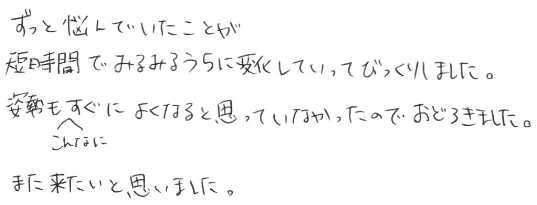 ずっと悩んでいたことが
短時間でみるみるうちに変化していってびっくりしました。
姿勢もすぐに よくなると思っていなかったので おどろきました。
こんなに
また来たいと思いました。